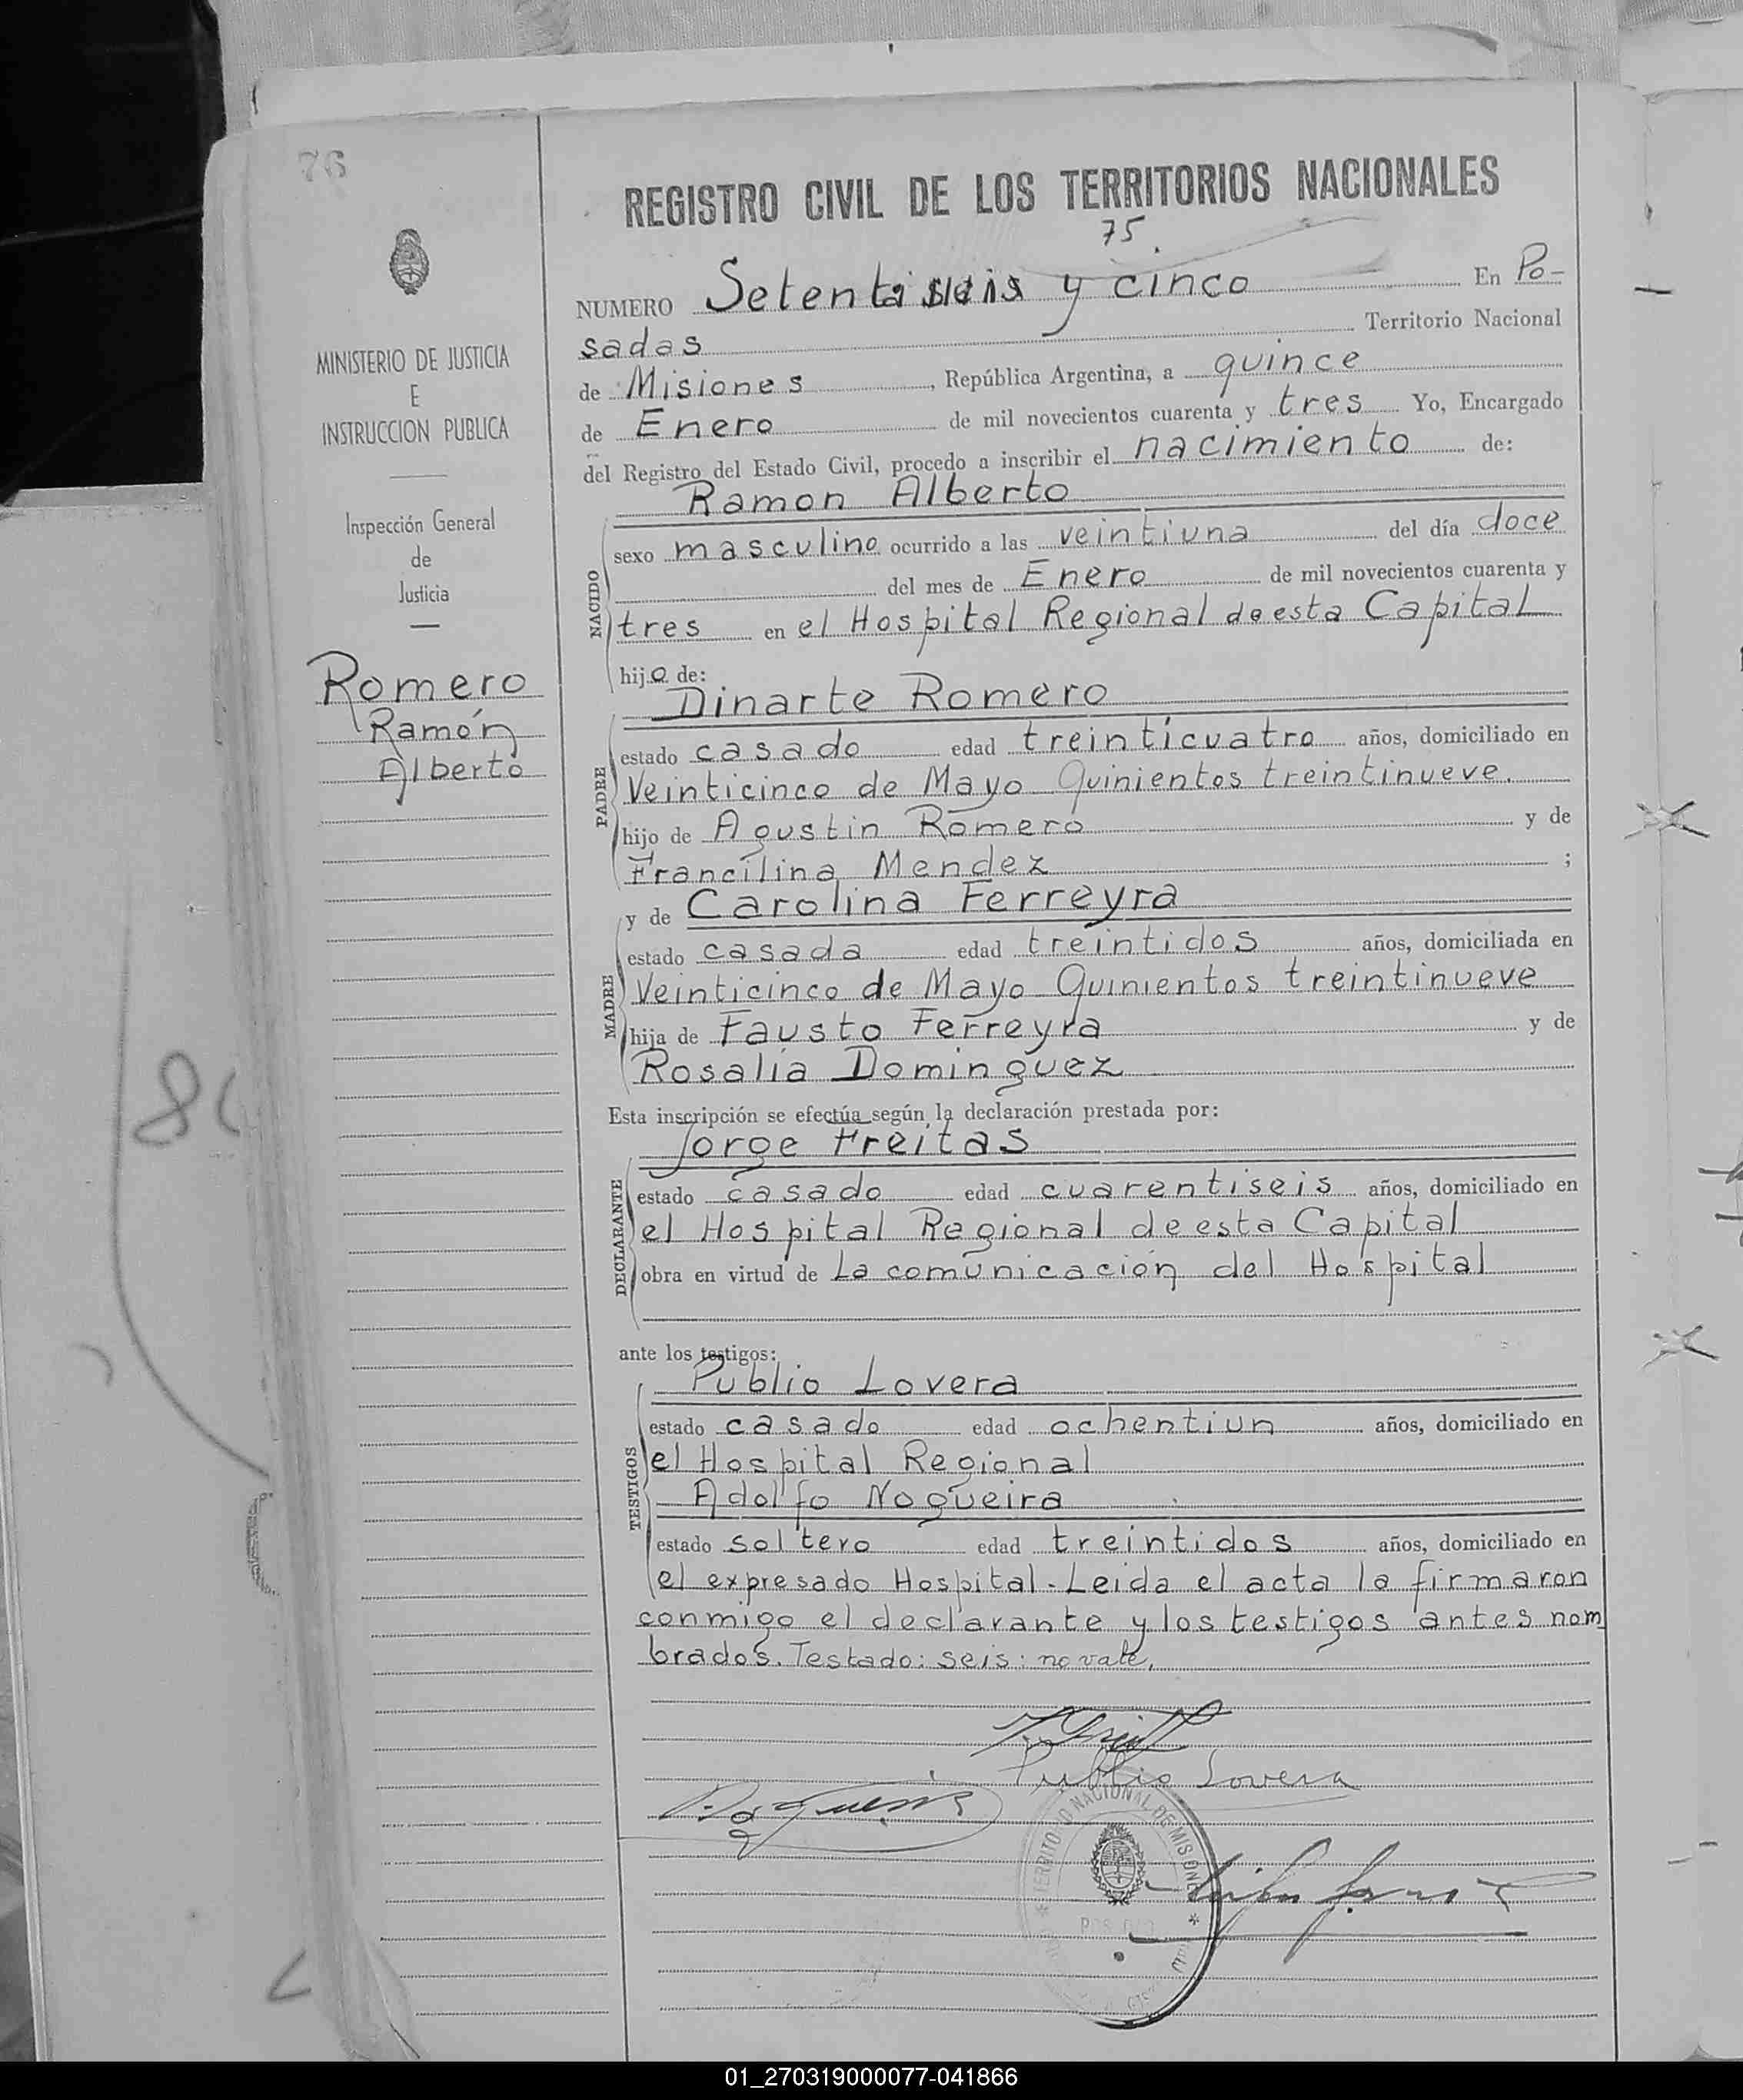 76
REGISTRO CIVIL DE LOS TERRITORIOS NACIONALES
75.
NUMERO Setenta seis y cinco En Po-
sadas Territorio Nacional
de Misiones, República Argentina, a quince
de Enero de mil novecientos cuarenta y tres Yo, Encargado
del Registro del Estado Civil, procedo a inscribir el nacimiento de:
Ramon Alberto
NACIDO
sexo masculino ocurrido a las veintiuna del día doce
del mes de Enero de mil novecientos cuarenta y
tres en el Hospital Regional de esta Capital
hijo de:
Dinarte Romero
PADRE
estado casado edad treinticuatro años, domiciliado en
Veinticinco de Mayo Quinientos treintinueve.
hijo de Agustin Romero y de
Francilina Mendez ;
y de Carolina Ferreyra
MADRE
estado casada edad treintidos años, domiciliada en
Veinticinco de Mayo Quinientos treintinueve
hija de Fausto Ferreyra y de
Rosalía Dominguez
Esta inscripción se efectúa según la declaración prestada por:
Jorge Freitas
DECLARANTE
estado casado edad cuarentiseis años, domiciliado en
el Hospital Regional de esta Capital
obra en virtud de La comunicación del Hospital
ante los testigos:
Publio Lovera
TESTIGOS
estado casado edad ochentiun años, domiciliado en
el Hospital Regional
Adolfo Nogueira
estado soltero edad treintidos años, domiciliado en
el expresado Hospital. Leida el acta la firmaron
conmigo el declarante y los testigos antes nom
brados. Testado: seis: no vale.
Publio Lovera
TERRITORIO NACIONAL DE MISIONES
MINISTERIO DE JUSTICIA
E
INSTRUCCION PUBLICA
Inspección General
de
Justicia
Romero
Ramón
Alberto
01_270319000077-041866